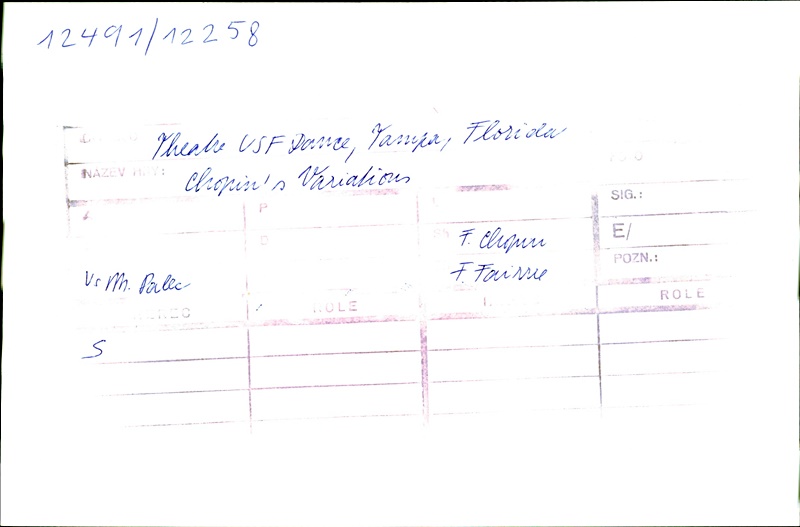 12491/12258
Theatre USF Dance, Tampa, Florida
NÁZEV HRY:
Chopin's Variations
SIG.:
P
D
F. Chopin
E/
POZN.:
M. Palec
F.
ROLE
ROLE
S